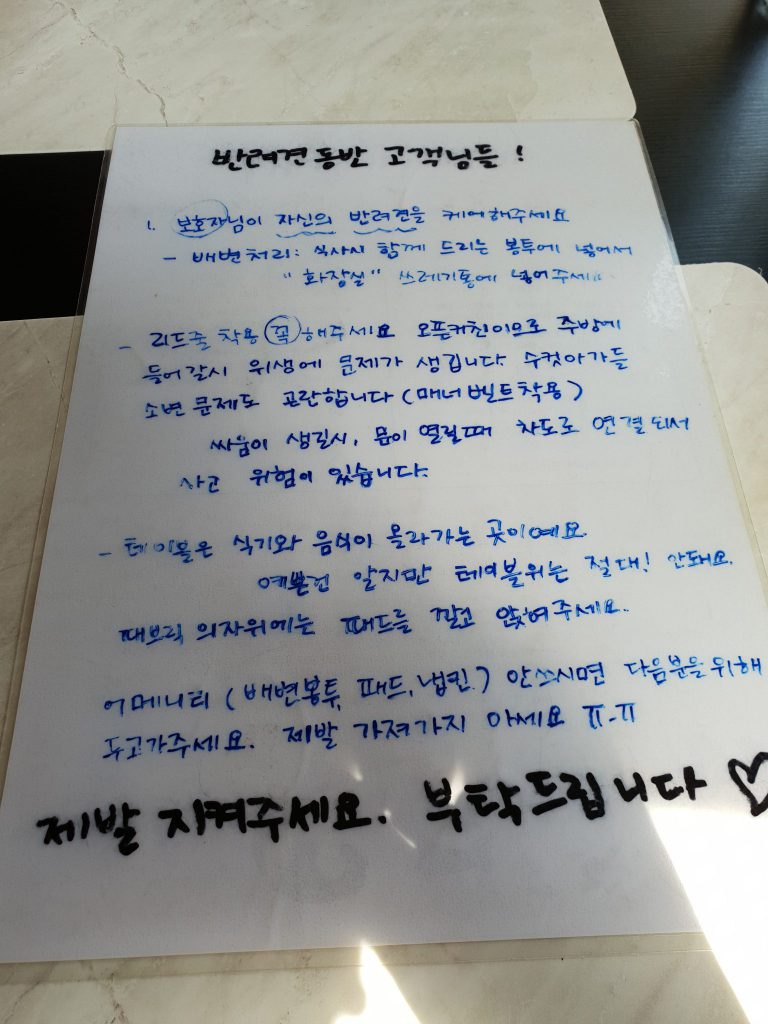 반려견동반 고객님들 !
1. 보호자님이 자신의 반려견을 케어해주세요
- 배변처리: 식사시 함께 드리는 봉투에 넣어서
"화장실" 쓰레기통에 넣어주세요
- 리드줄 착용 꼭 해주세요 오픈키친이므로 주방에
들어갈시 위생에 문제가 생깁니다. 수컷아가들
소변문제도 곤란합니다 (매너벨트착용)
싸움이 생길시, 문이 열릴때 차도로 연결되서
사고 위험이 있습니다.
- 테이블은 식기와 음식이 올라가는 곳이예요.
예쁜건 알지만 테이블위는 절대! 안돼요.
패브릭 의자위에는 패드를 깔고 앉혀주세요.
어메니티 (배변봉투, 패드, 냅킨) 안쓰시면 다음분을위해
두고가주세요. 제발 가져가지 마세요 ㅠ.ㅠ
제발 지켜주세요. 부탁드립니다 ♡